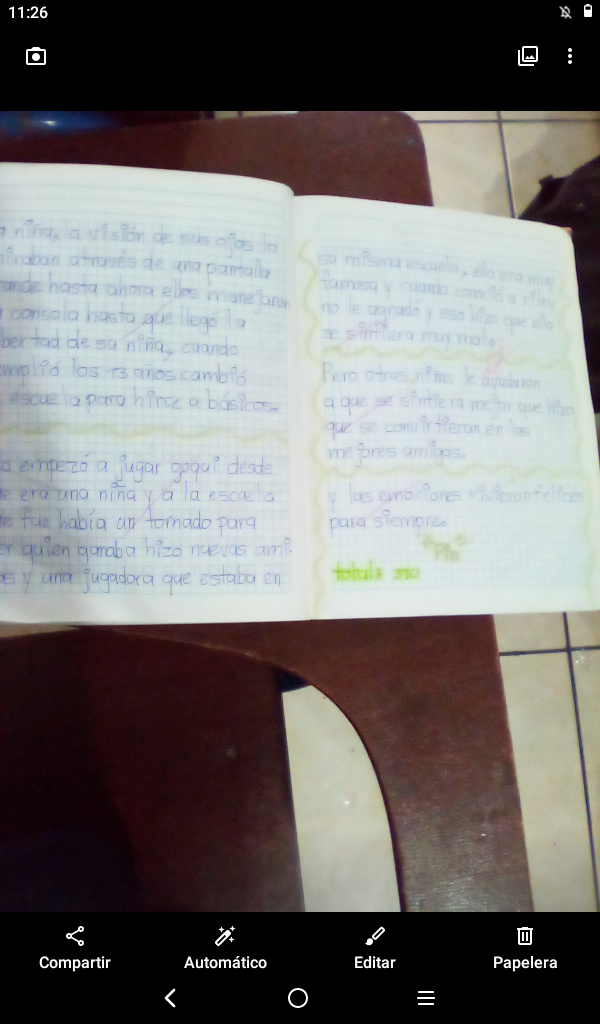 11:26
niña, la visión de sus ojos lo
miraban através de una pantalla
ande hasta ahora ellos manejaron
consola hasta que llegó la
bertad de su niña, cuando
umplió los 13 años cambió
escuela para hirce a básicos.
empezó a jugar goqui desde
e era una niña y a la escuela
e fue había un tornado para
er quien ganaba hizo nuevas ami-
as y una jugadora que estaba en
su misma escuela, ella era muy
famosa y cuando conoció a riley
no le agradó y eso hizo que ella
se sintiera muy mala.
Pero otras niñas le ayudaron
a que se sintiera mejor que hizo
que se convirtieran en las
mejores amigas.
y las emociones vivieron felices
para siempre.
Fin
total: 310
Compartir
Automático
Editar
Papelera